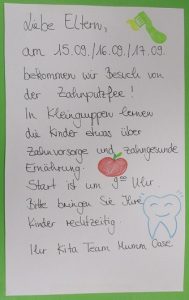 Liebe Eltern,
am 15.09./16.09./17.09.
bekommen wir Besuch von
der Zahnputzfee!
In Kleingruppen lernen
die Kinder etwas über
Zahnvorsorge und zahngesunde
Ernährung.
Start ist um 9⁰⁰ Uhr.
Bitte bringen Sie Ihre
Kinder rechtzeitig.
Ihr Kita Team Mumm Oase